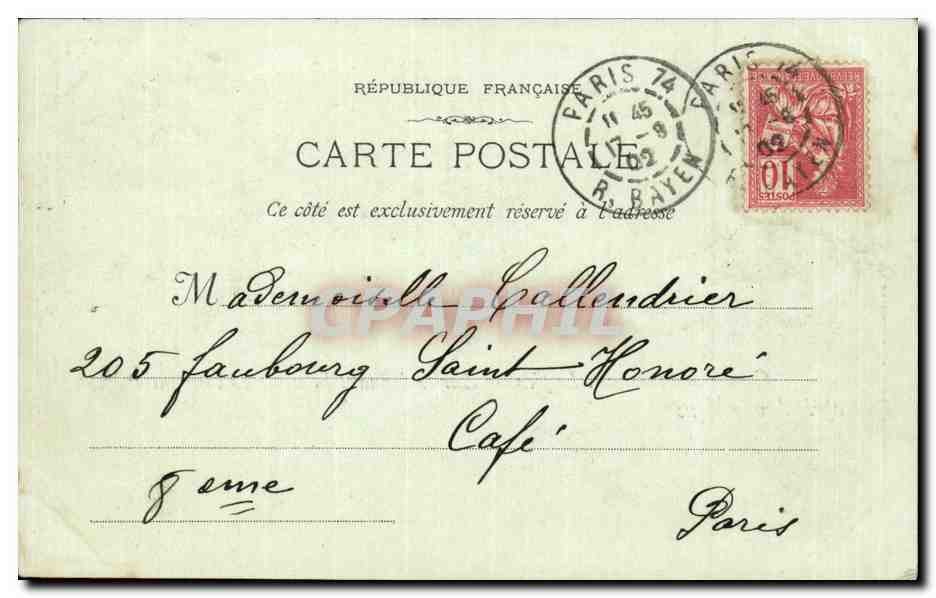 RÉPUBLIQUE FRANÇAISE
CARTE POSTALE
Ce côté est exclusivement réservé à l'adresse
PARIS 74
11 45
17 - 8
02
R. BAYEN
PARIS 74
02
BAYEN
POSTES
10
Mademoiselle Callendrier
CPAPHIL
205 faubourg Saint-Honoré
Café
8 eme
Paris